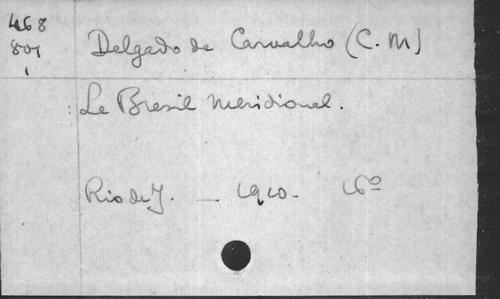 468
801
Delgado de Carvalho (C. M)
Le Bresil Meridional.
Rio de J. — 1910. 16º